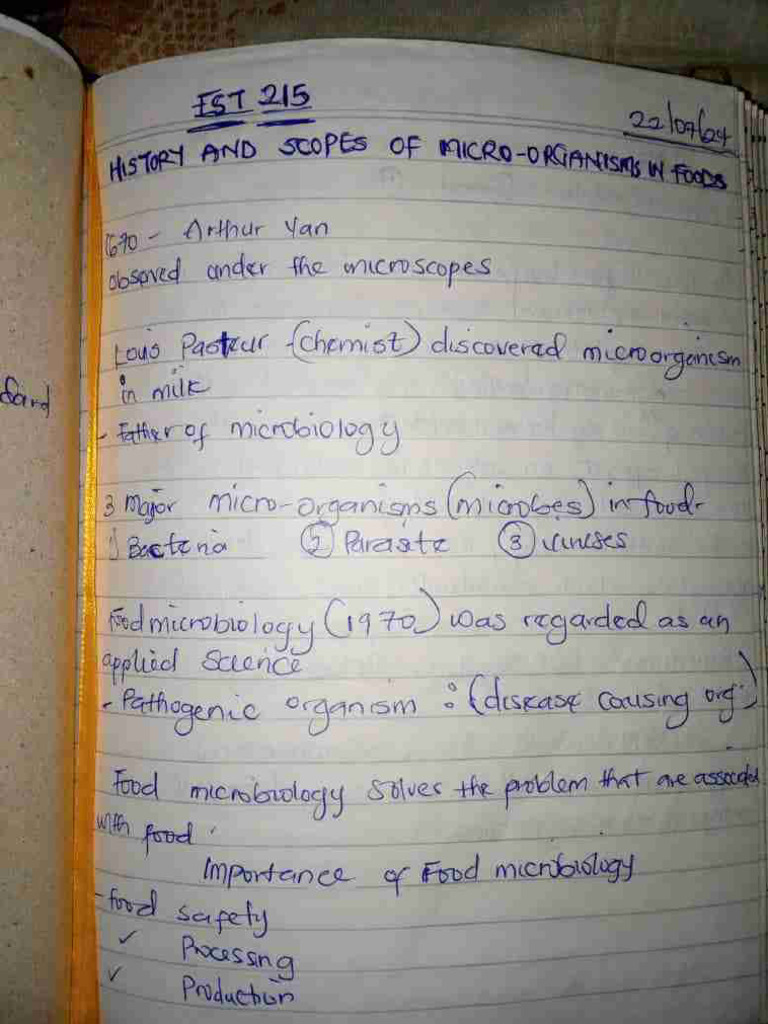 FST 215
22/07/24
HISTORY AND SCOPES OF MICRO-ORGANISMS IN FOODS
1670 - Arthur Yan
obseved under the microscopes
Louis Pasteur - (chemist) discovered microorganism
in milk
- Father of microbiology
3 major micro-organisms (microbes) in food-
1) Bacteria ② Parasite ③ viruses
Food microbiology (1970) was regarded as an
applied science
- Pathogenic organism : (disease causing org.)
Food microbiology solves the problem that are associated
with food.
Importance of Food microbiology
- food safety
✓ Processing
✓ Production